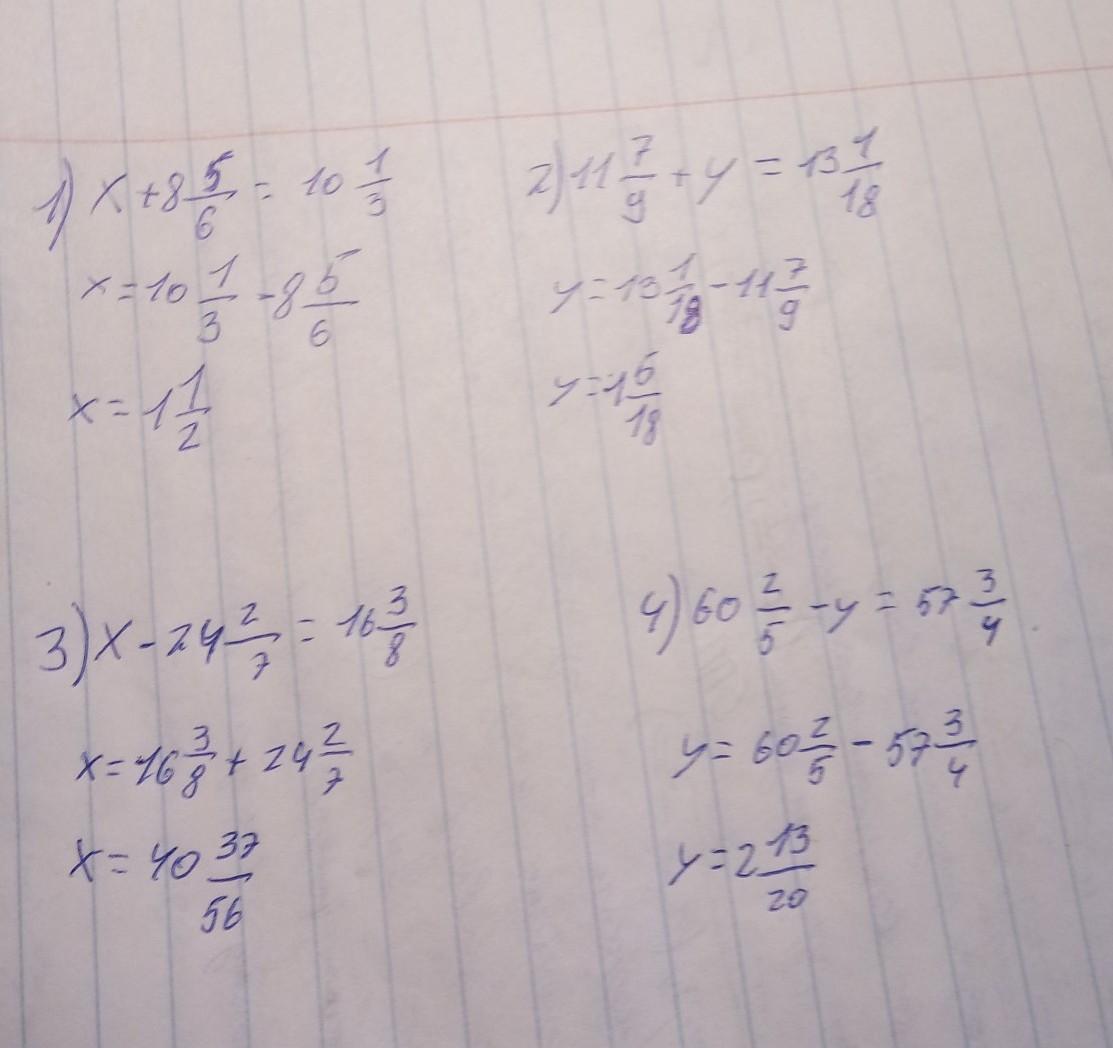 1) x + 8 5/6 = 10 1/3
x = 10 1/3 - 8 5/6
x = 1 1/2
2) 11 7/9 + y = 13 1/18
y = 13 1/18 - 11 7/9
y = 1 5/18
3) x - 24 2/7 = 16 3/8
x = 16 3/8 + 24 2/7
x = 40 37/56
4) 60 2/5 - y = 57 3/4
y = 60 2/5 - 57 3/4
y = 2 13/20